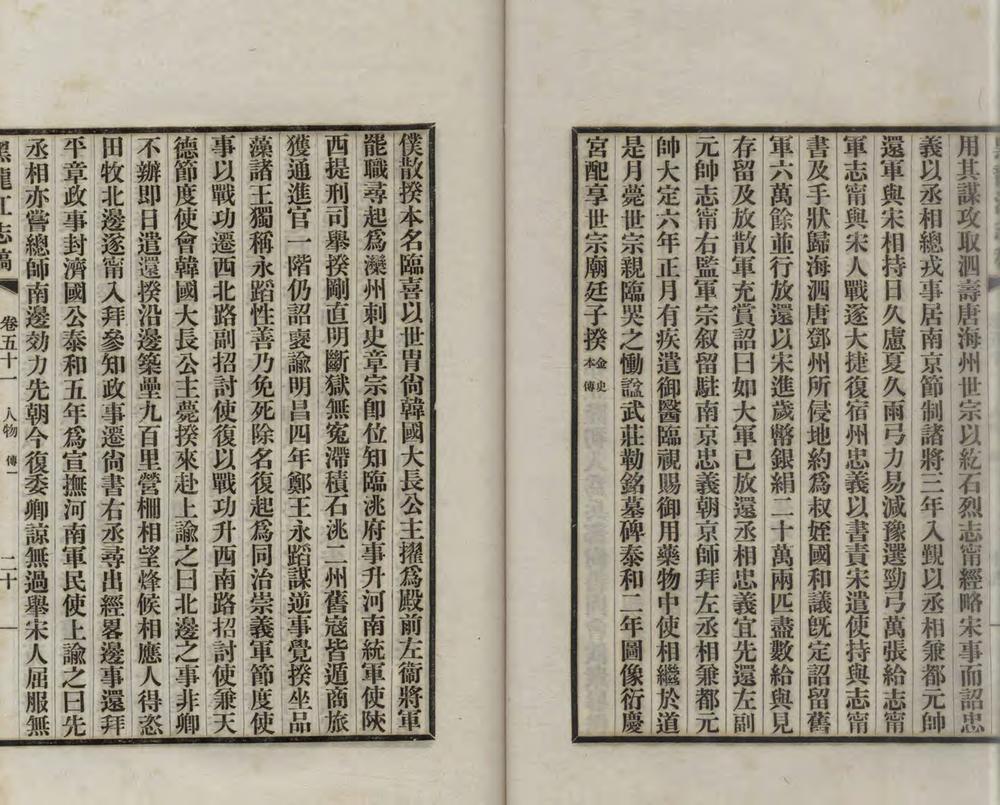 用其謀攻取泗壽唐海州世宗以紇石烈志甯經略宋事而詔忠
義以丞相總戎事居南京節制諸將三年入覲以丞相兼都元帥
還軍與宋相持日久慮夏久雨弓力易減豫選勁弓萬張給志甯
軍志甯與宋人戰遂大捷復宿州忠義以書責宋遣使持與志甯
書及手狀歸海泗唐鄧州所侵地約爲叔姪國和議旣定詔留舊
軍六萬餘並行放還以宋進歲幣銀絹二十萬兩匹盡數給與見
存留及放散軍充賞詔曰如大軍已放還丞相忠義宜先還左副
元帥志甯右監軍宗叙留駐南京忠義朝京師拜左丞相兼都元
帥大定六年正月有疾遣御醫臨視賜御用藥物中使相繼於道
是月薨世宗親臨哭之慟諡武莊勒銘墓碑泰和二年圖像衍慶
宮配享世宗廟廷子揆 金史本傳
僕散揆本名臨喜以世胄尙韓國大長公主擢爲殿前左衞將軍
罷職尋起爲灤州刺史章宗卽位知臨洮府事升河南統軍使陝
西提刑司舉揆剛直明斷獄無寃滯積石洮二州舊寇皆遁商旅
獲通進官一階仍詔襃諭明昌四年鄭王永蹈謀逆事覺揆坐品
藻諸王獨稱永蹈性善乃免死除名復起爲同治崇義軍節度使
事以戰功遷西北路副招討使復以戰功升西南路招討使兼天
德節度使會韓國大長公主薨揆來赴上諭之曰北邊之事非卿
不辦卽日遣還揆沿邊築壘九百里營柵相望烽候相應人得恣
田牧北邊遂甯入拜參知政事遷尙書右丞尋出經畧邊事還拜
平章政事封濟國公泰和五年爲宣撫河南軍民使上諭之曰先
丞相亦嘗總師南邊効力先朝今復委卿諒無過舉宋人屈服無
黑龍江志稿 卷五十一 人物 傳一 二十一